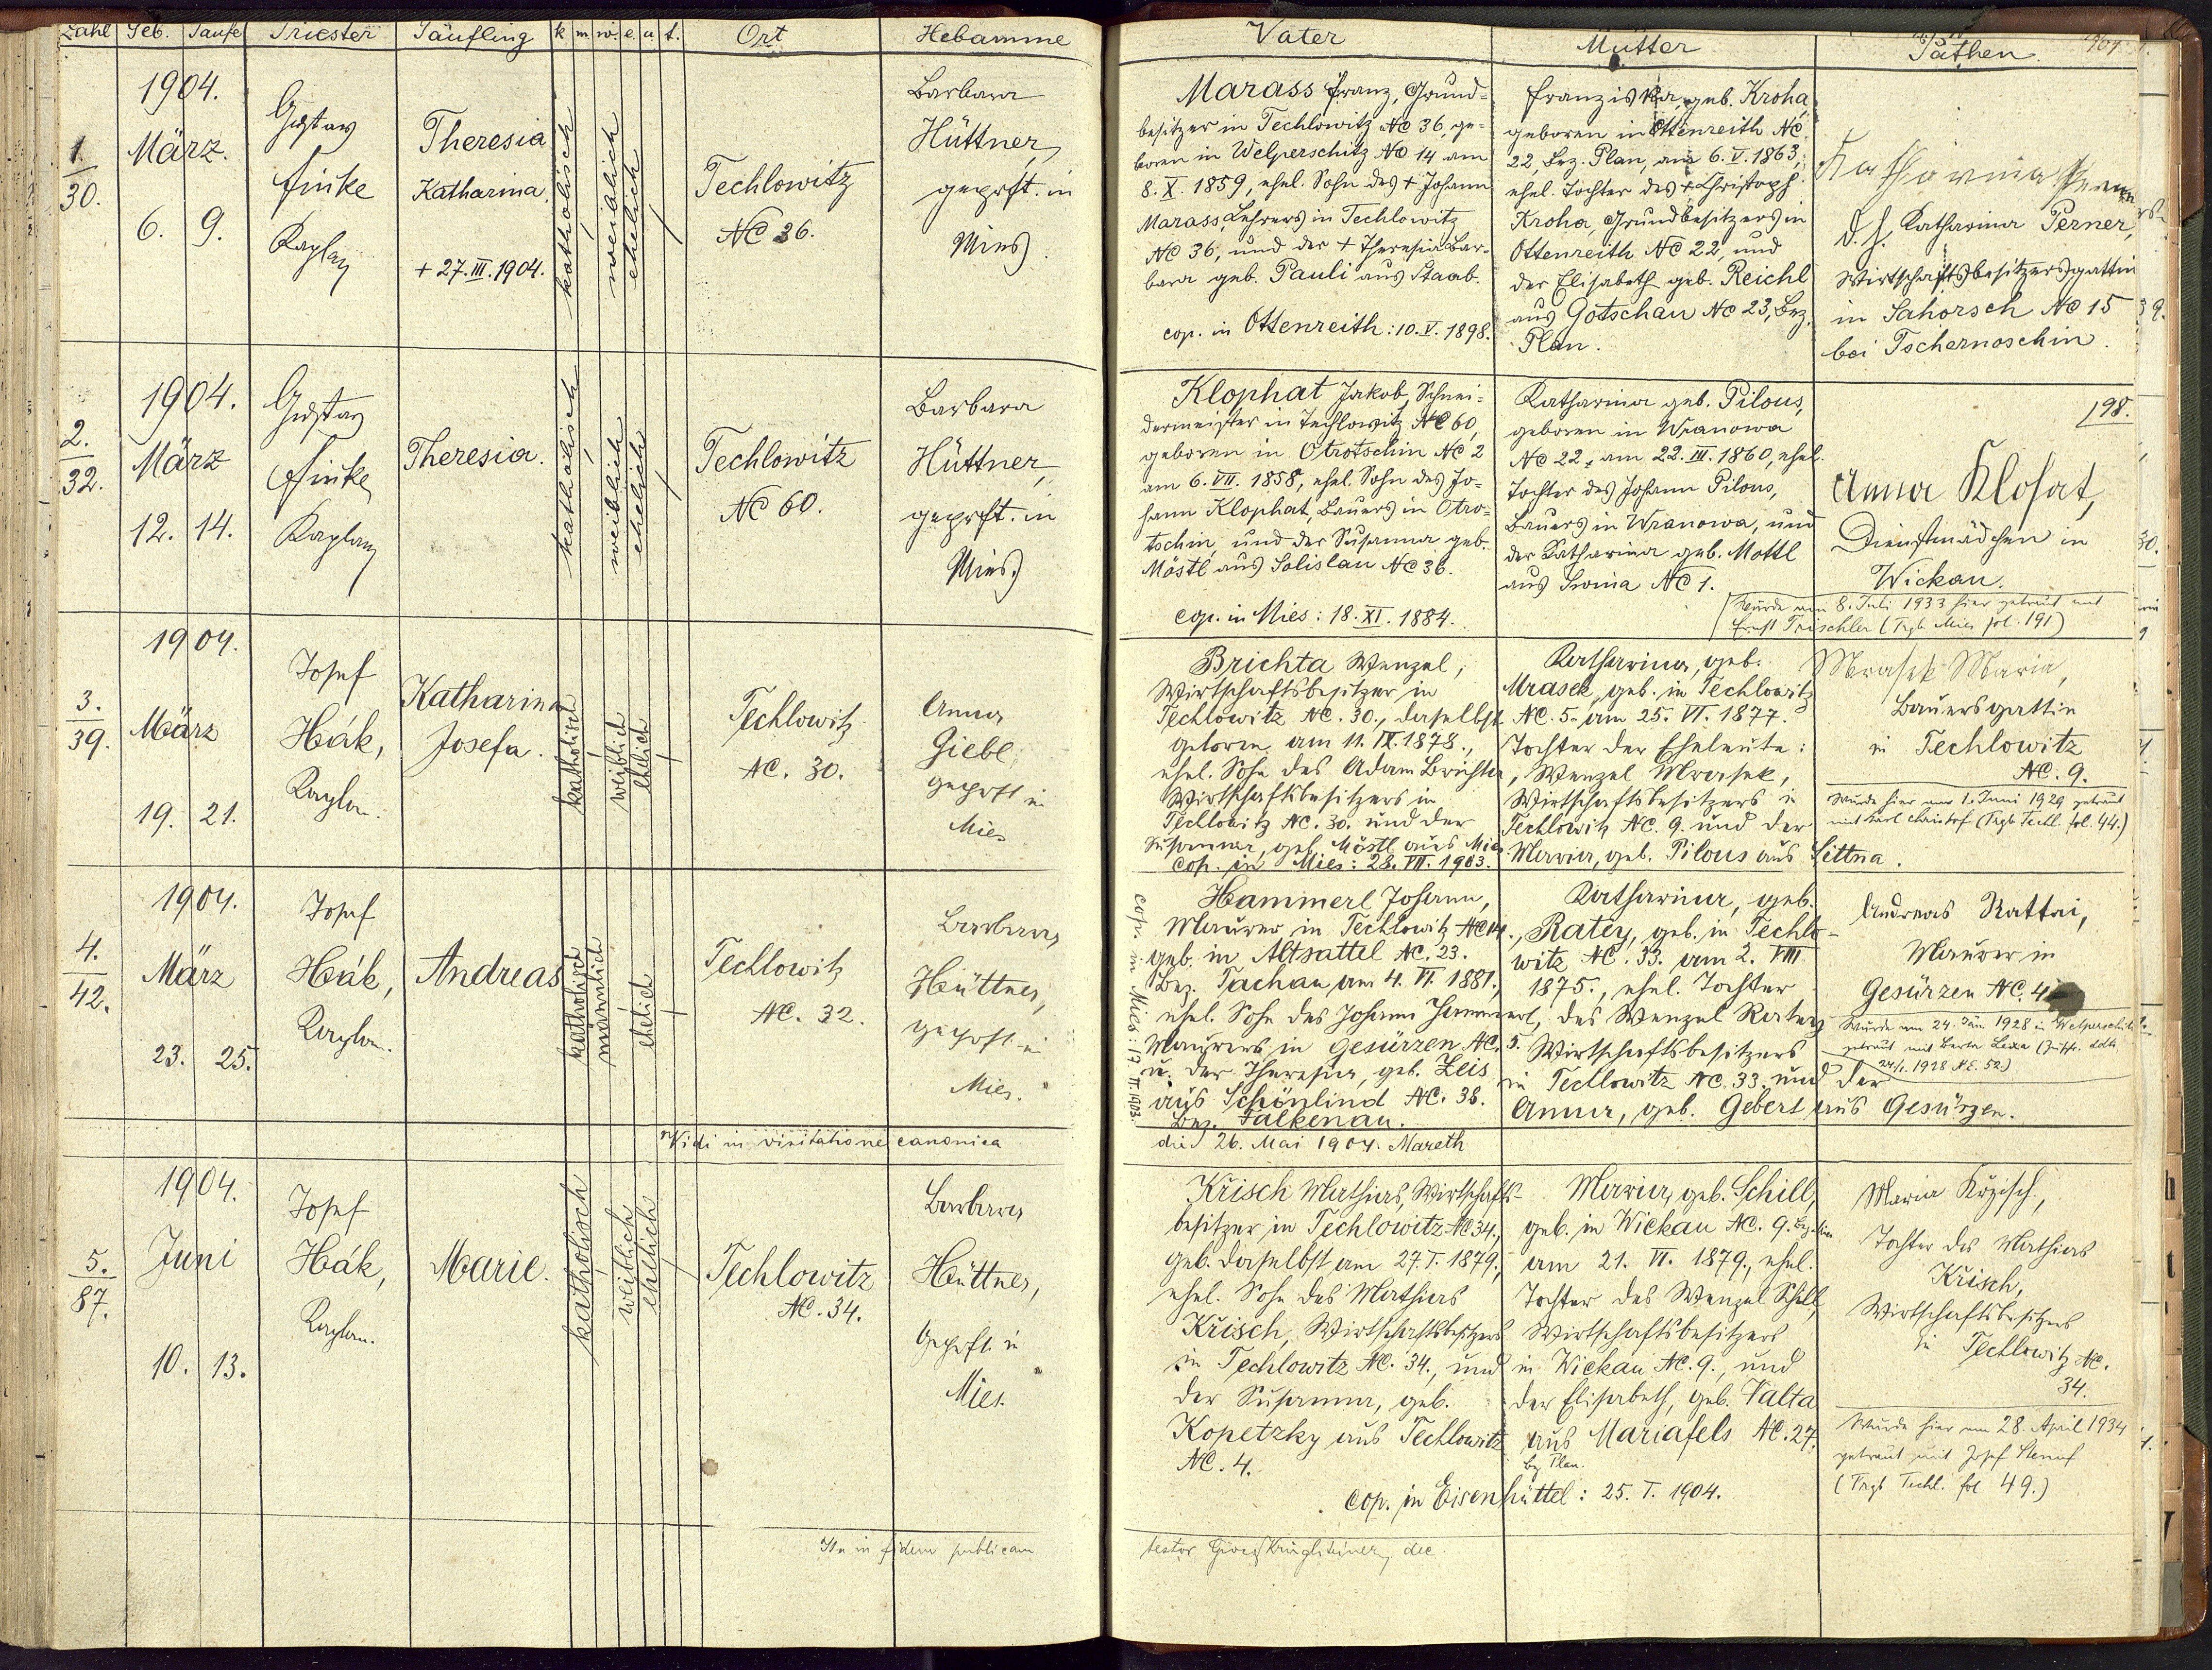 Zahl Geb. Taufe Priester Täufling k. m. w. e. u. t. Ort Hebamme
Vater Mutter Pathen 1904
1.
30.
1904.
März.
6. 9.
Gustav
Finke
Kaplan
Theresia
Katharina,
+ 27.III.1904.
katholisch
weiblich
ehelich
Techlowitz
NC 36.
Barbara
Hüttner,
geprft. in
Mies.
Marass Franz, Grund-
besitzer in Techlowitz NC 36, ge-
boren in Welperschitz NC 14 am
8. X. 1859, ehel. Sohn des + Johann
Marass, Lehrers in Techlowitz
NC 36, und der + Theresia Bar-
bara geb. Pauli aus Staab.
cop. in Ottenreith: 10. V. 1898.
Franziska, geb. Kroha,
geboren in Ottenreith NC.
22, Bez. Plan, am 6. V. 1863,
ehel. Tochter des + Christoph
Kroha, Grundbesitzers in
Ottenreith NC 22, und
der Elisabeth geb. Reichl
aus Gotschau NC 23, Bez.
Plan.
Katharina Perner
d. h. Katharina Perner,
Wirtschaftsbesitzersgattin
in Sahorsch NC 15
bei Tschernoschin.
2.
32.
1904.
März
12. 14.
Gustav
Finke,
Kaplan
Theresia.
katholisch
weiblich
ehelich
Techlowitz
NC 60.
Barbara
Hüttner,
geprft. in
Mies.
Klophat Jakob, Schnei-
dermeister in Techlowitz NC 60,
geboren in Otrotschin NC 2
am 6. VII. 1858, ehel. Sohn des Jo-
hann Klophat, Bauers in Otro-
tschin, und der Susanna geb.
Möstl aus Solislau NC 36.
cop. in Mies: 18. XI. 1884.
Katharina geb. Pilous,
geboren in Wranowa
NC 22, am 22. III. 1860, ehel.
Tochter des Johann Pilous,
Bauers in Wranowa, und
der Katharina geb. Mottl
aus Swina NC 1.
198.
Anna Klofat,
Dienstmädchen in
Wickau.
Wurde am 8. Juli 1933 hier getraut mit
Ernst Trischler (Trgb. Mies fol. 191)
3.
39.
1904.
März
19. 21.
Josef
Hák,
Kaplan.
Katharina
Josefa.
katholisch
weiblich
ehelich
Techlowitz
NC. 30.
Anna
Giebl,
geprft in
Mies
Brichta Wenzel,
Wirtschaftsbesitzer in
Techlowitz NC. 30., daselbst
geboren am 11. IX. 1878.,
ehel. Sohn des Adam Brichta,
Wirtschaftsbesitzers in
Techlowitz NC. 30. und der
Susanna, geb. Möstl aus Mies.
cop. in Mies: 28. VII. 1903.
Katharina, geb.
Mrasek, geb. in Techlowitz
NC. 5. am 25. VI. 1877.
Tochter der Eheleute:
Wenzel Mrasek,
Wirtschaftsbesitzers in
Techlowitz NC. 9. und der
Maria, geb. Pilous aus Littna.
Mrasek Maria,
Bauersgattin
in Techlowitz
NC. 9.
Wurde hier am 1. Juni 1929 getraut
mit Karl Christof (Trgb Techl. fol. 44.)
4.
42.
1904.
März
23. 25.
Josef
Hák,
Kaplan.
Andreas
katholisch
männlich
ehelich
Techlowitz
NC. 32.
Barbara
Hüttner,
geprft in
Mies.
cop. in Mies: 17. II. 1903.
Hammerl Johann,
Maurer in Techlowitz NC 14.,
geb. in Altsattel NC. 23.
Bez. Tachau am 4. VI. 1881.,
ehel. Sohn des Johann Hammerl,
Maurers in Gesürzen NC. 5.
u. der Theresia, geb. Zeis
aus Schönlind NC. 38.
Bez. Falkenau.
Katharina, geb.
Ratey, geb. in Techlo-
witz NC. 33. am 2. VIII
1875., ehel. Tochter
des Wenzel Ratey
Wirtschaftsbesitzers
in Techlowitz NC. 33. und der
Anna, geb. Gebert aus Gesürzen.
Andreas Rattai,
Maurer in
Gesürzen NC. 4
Wurde am 24. Jän. 1928 in Welperschitz
getraut mit Berta Lexa
24/1. 1928 N.E. 52)
Vidi in visitatione canonica
die 26. Mai 1904. Mareth
5.
87.
1904.
Juni
10. 13.
Josef
Hák,
Kaplan.
Marie.
katholisch
weiblich
ehelich
Techlowitz
NC. 34.
Barbara
Hüttner,
geprft in
Mies.
Křisch Mathias, Wirtschafts-
besitzer in Techlowitz NC. 34.,
geb. daselbst am 27. I. 1879.,
ehel. Sohn des Mathias
Křisch, Wirtschaftsbesitzers
in Techlowitz NC. 34., und
der Susanna, geb.
Kopetzky aus Techlowitz
NC. 4.
Maria, geb. Schill,
geb. in Wickau NC. 9.
am 21. VI. 1879., ehel.
Tochter des Wenzel Schill,
Wirtschaftsbesitzers
in Wickau NC. 9., und
der Elisabeth, geb. Valta
aus Mariafels NC. 27.
bez. Plan.
cop. in Eisenhüttel: 25. I. 1904.
Maria
Tochter des Mathias
Krisch,
Wirtschaftsbesitzers
in Techlowitz NC.
34.
Wurde hier am 28. April 1934
getraut mit Josef
(Trgb Techl. fol 49.)
Ita in fidem publicam
testor